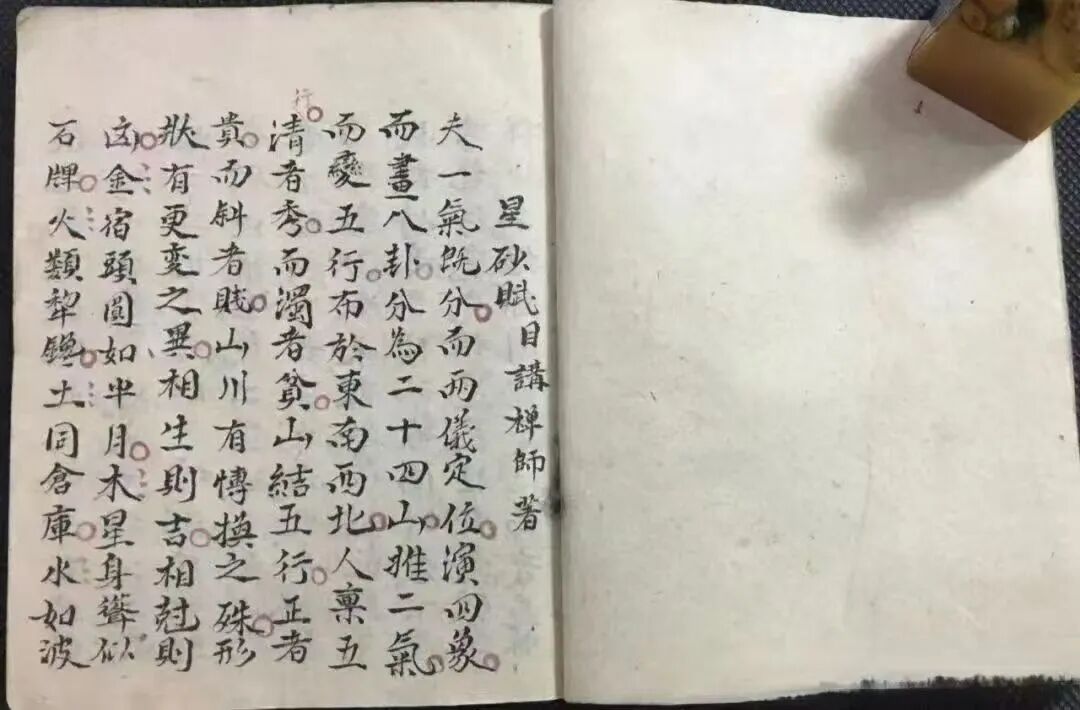 星砂賦目講禅師著
夫一氣旣分而兩儀定位演四象
而畫八卦分為二十四山唯二氣
而變五行布於東南西北人稟五
行
清者秀而濁者貧山結五行正者
貴而斜者賤山川有慱換之殊形
狀有更変之異相生則吉相尅則
凶金宿頭圓如半月木星身聳似
石牌火類犂鑱土同倉庫水如波